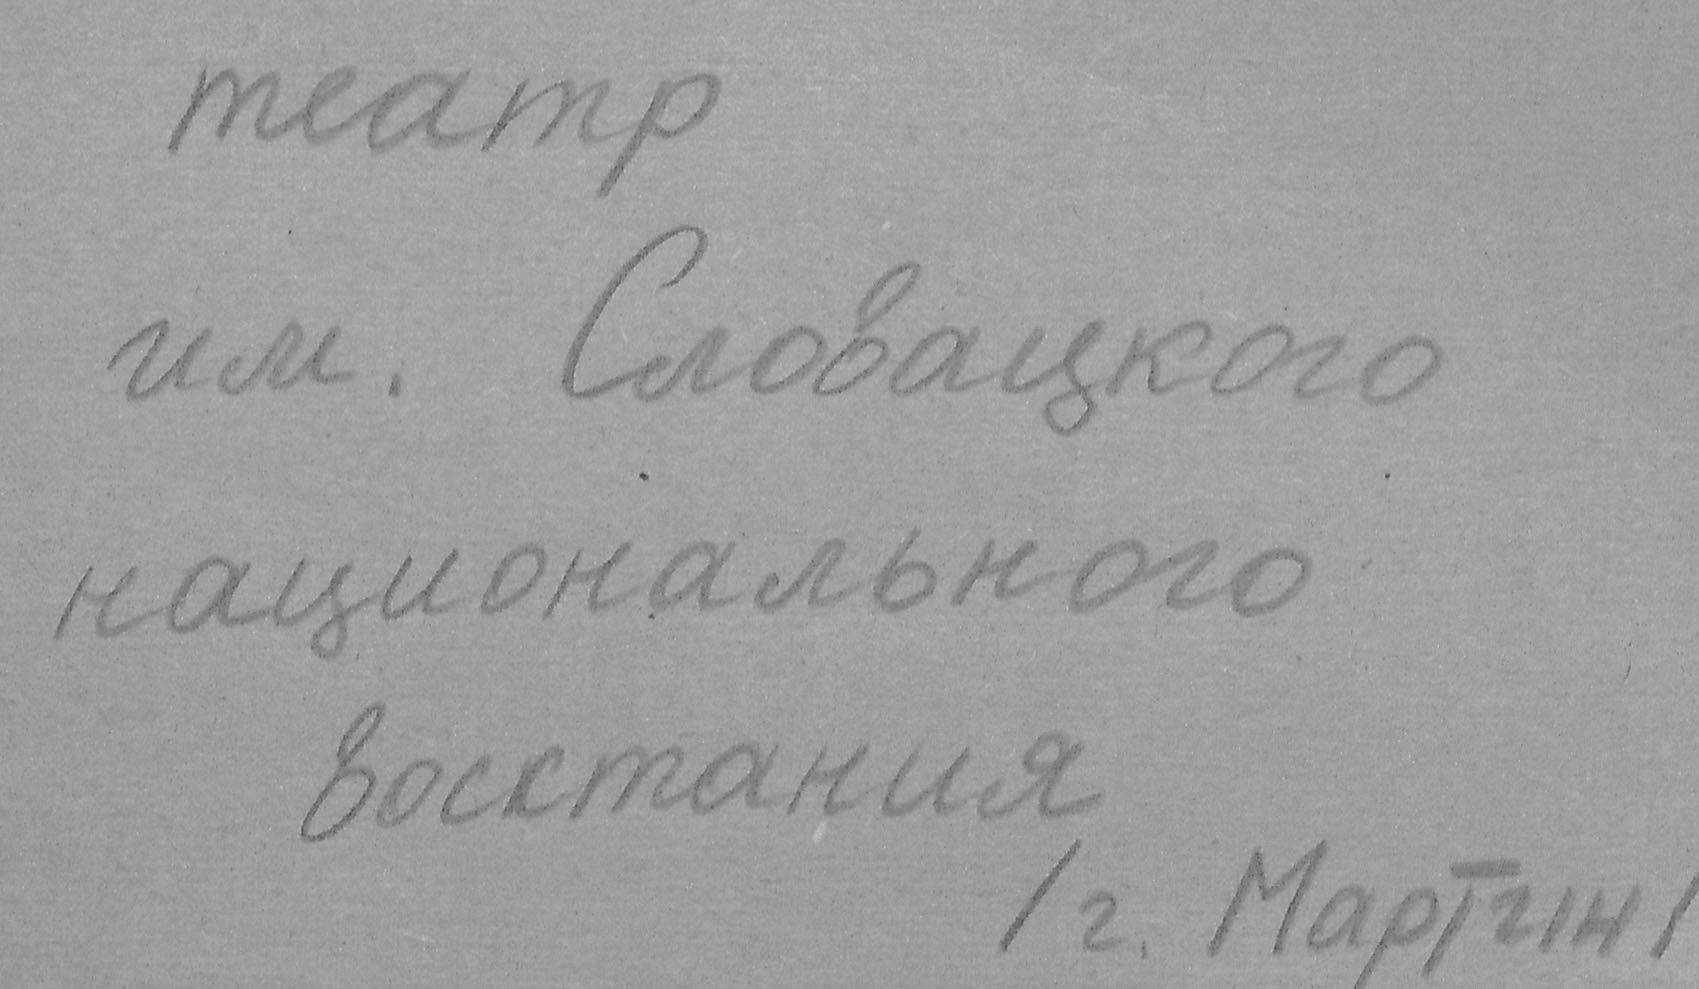 театр
им. Словацкого
национального
восстания
/г. Мартин/